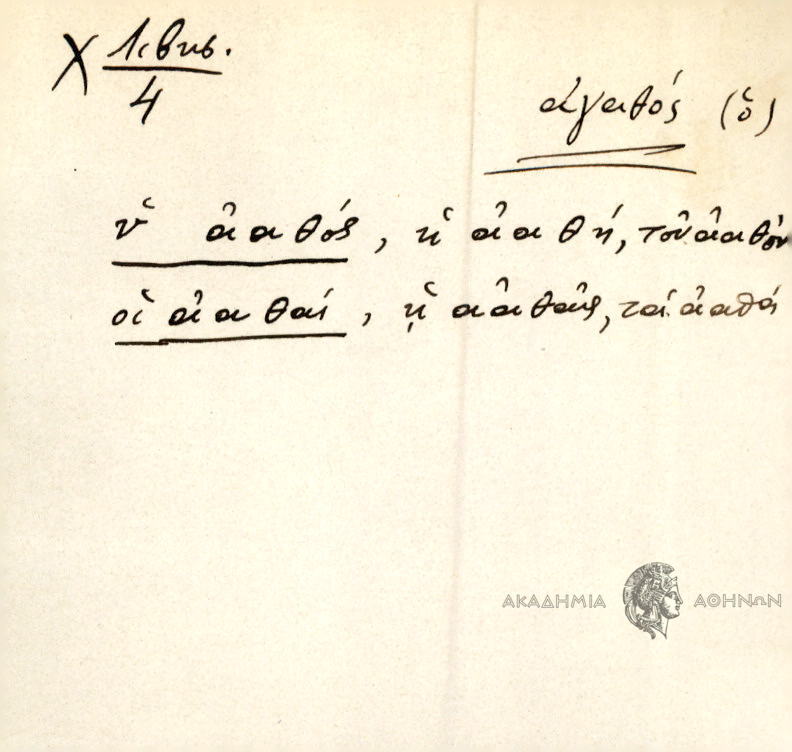 Χ Λιβησ.
4
ἀγαθός (ὁ)
ὑ ἀαθός, ἡ ἀαθή, τοὺ ἀαθόν
οἱ ἀαθοί, ἡ ἀαθοῖς, τά ἀαθά
ΑΚΑΔΗΜΙΑ ΑΘΗΝΩΝ